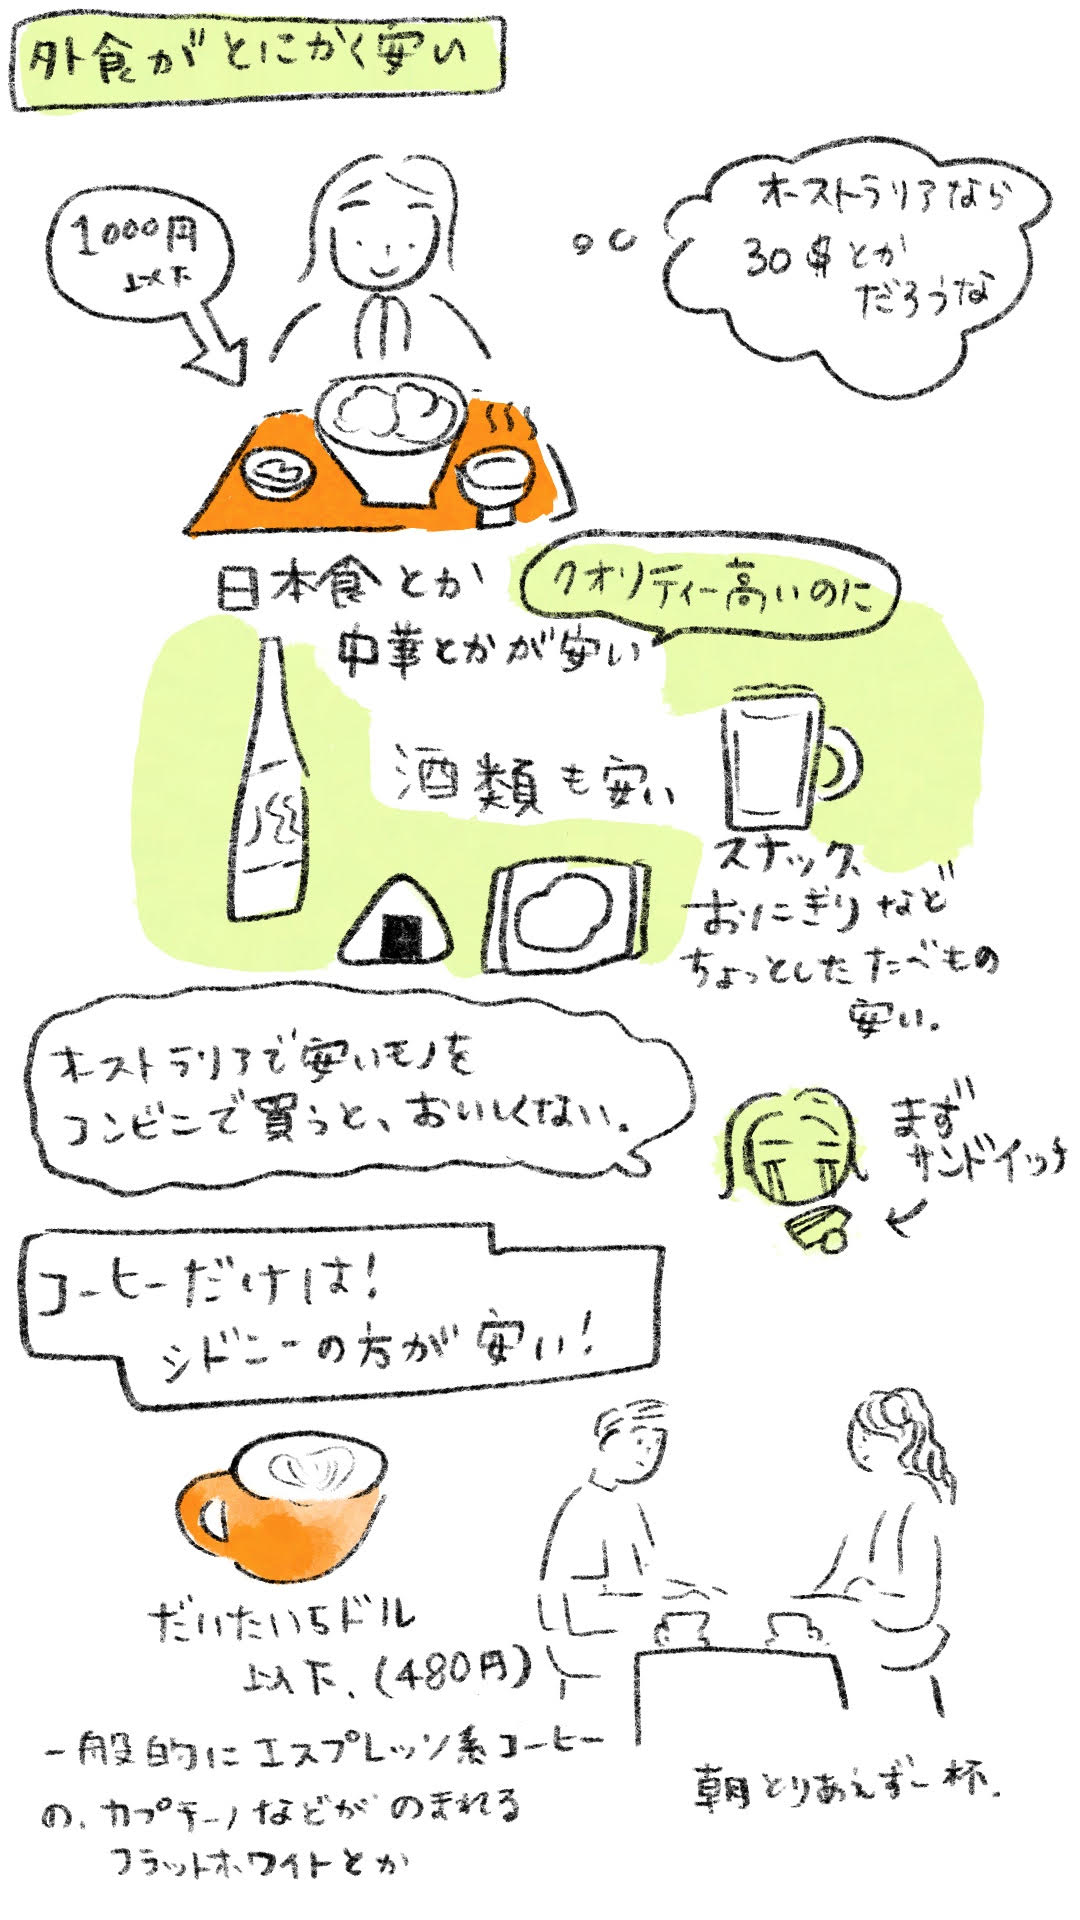 外食がとにかく安い
1000円
以下
オーストラリアなら
30$とか
だろうな
日本食とか
クオリティー高いのに
中華とかが安い
酒類も安い
スナック、
おにぎりなど
ちょっとしたたべもの
安い.
オーストラリアで安いモノを
コンビニで買うと、おいしくない.
まず
サンドイッチ
コーヒーだけは!
シドニーの方が安い!
だいたい5ドル
以下.(480円)
一般的にエスプレッソ系コーヒー
の、カプチーノなどがのまれる
フラットホワイトとか
朝とりあえず一杯.